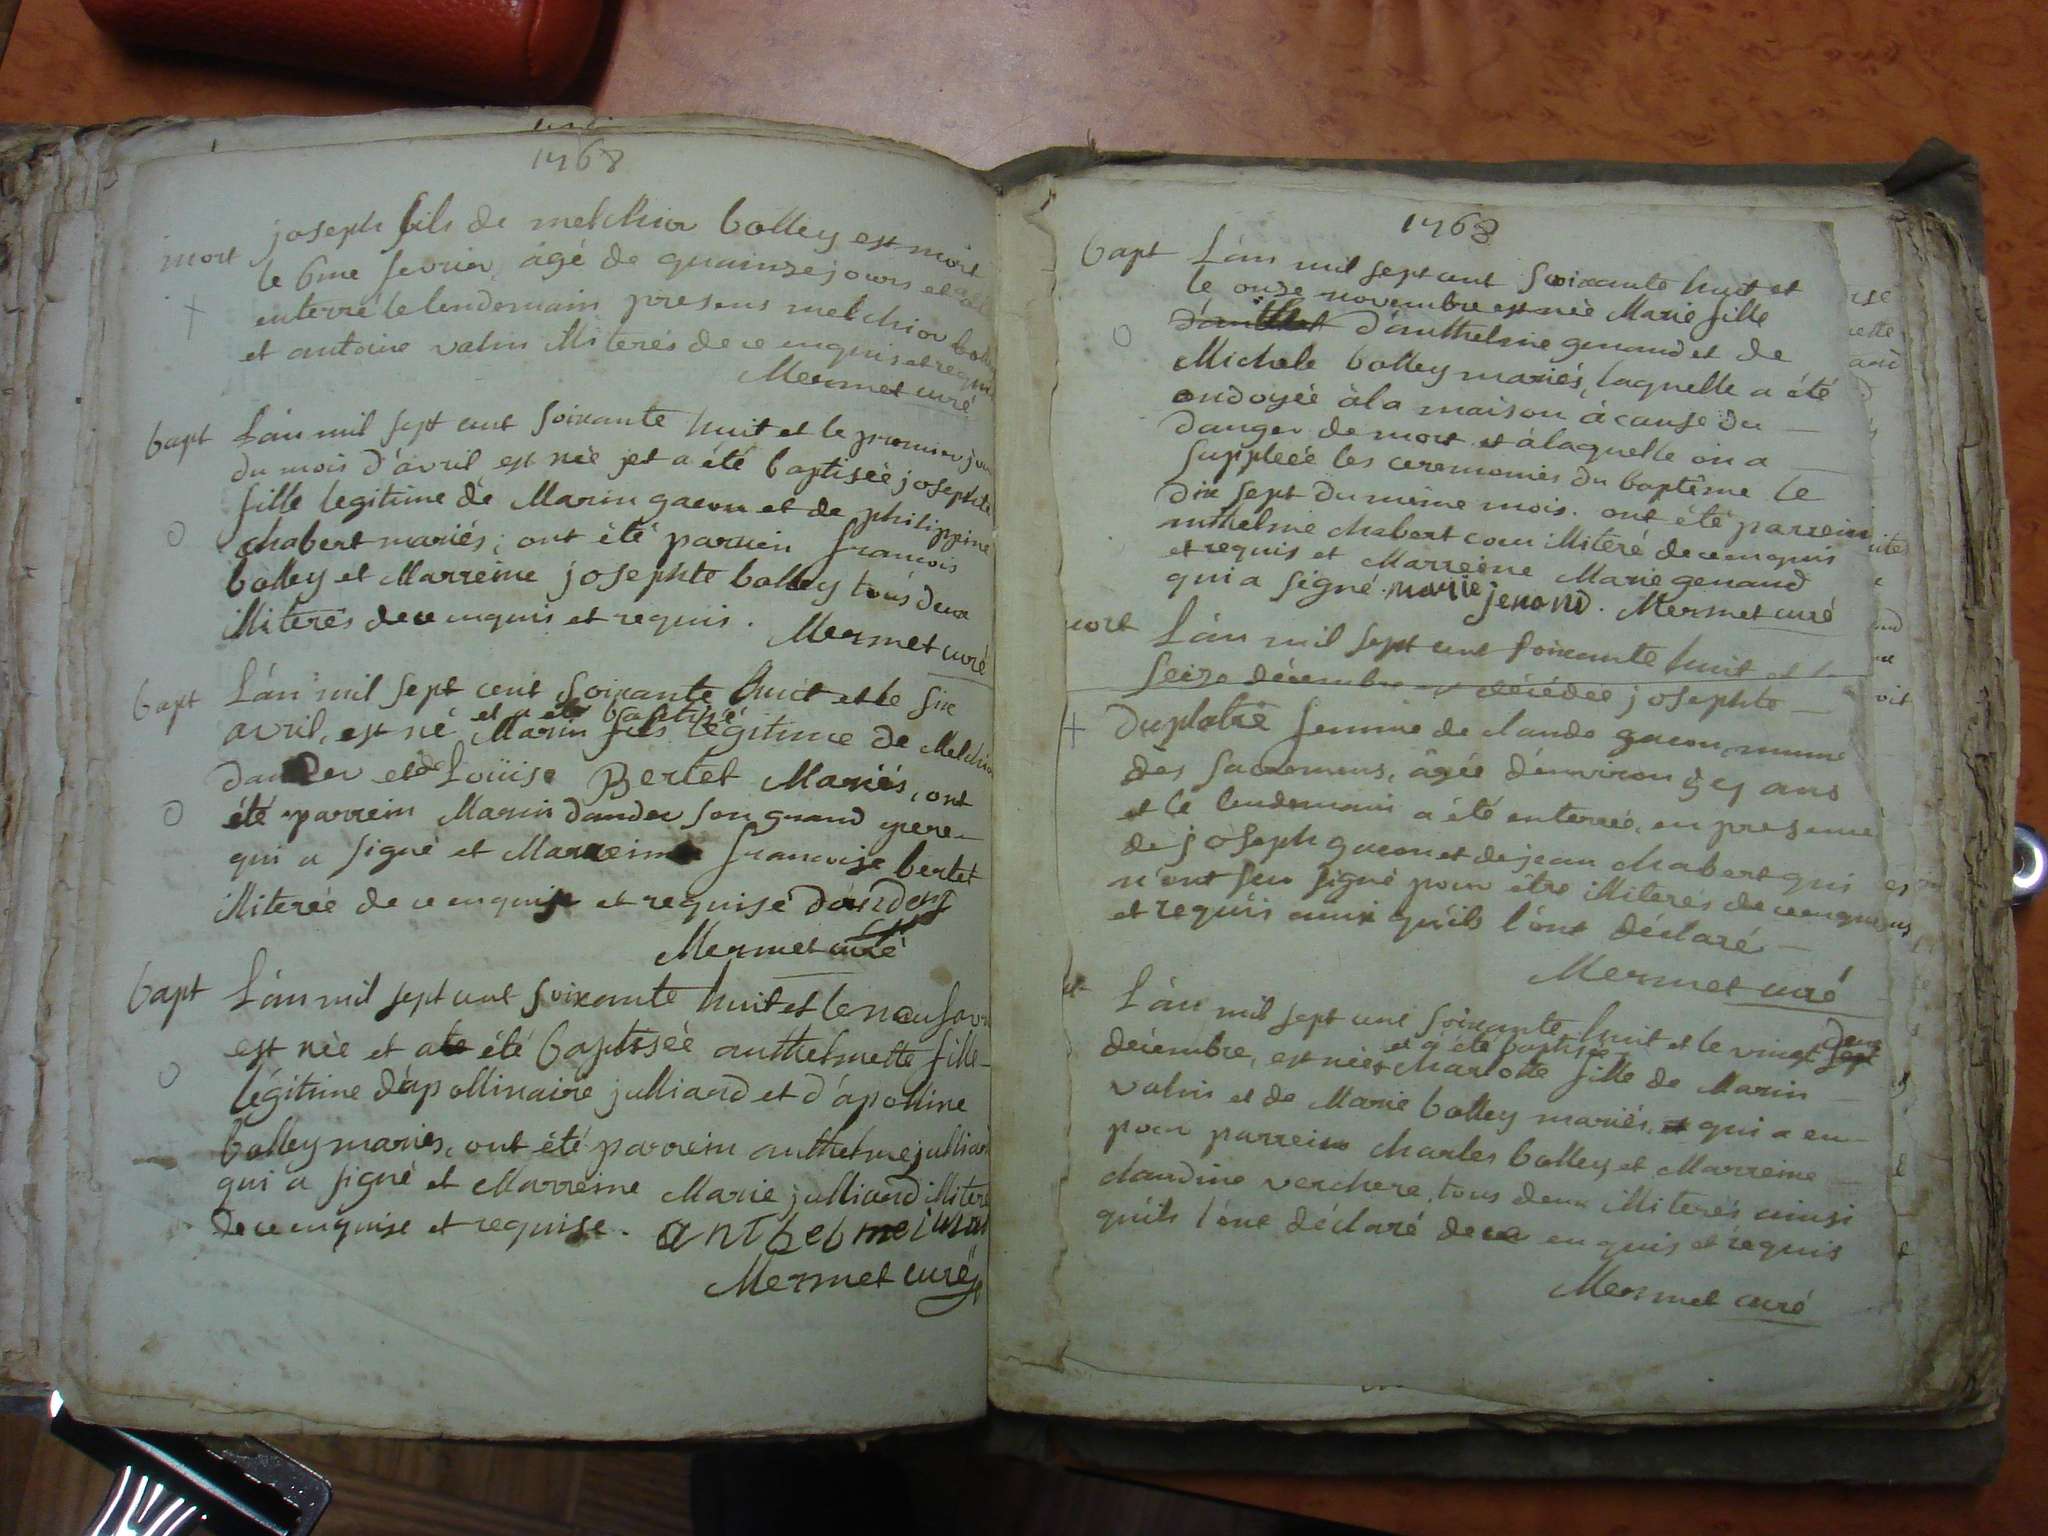 1768
mort joseph fils de melchior bolley est mort
le 6me fevrier, âgé de quainze jours et a été
enterré le lendemain presens melchior bolley
et antoine valin illiterés de ce enquis et requis
Mermet curé
bapt L'an mil sept cent soixante huit et le premier jour
du mois d'avril est née et a été baptisée josephte
fille legitime de Marin gacon et de philippine
chabert mariés; ont été parrein francois
bolley et Marreine josephte bolley tous deux
illiterés de ce enquis et requis. Mermet curé
bapt L'an mil sept cent soixante huit et le six
avril, est né et a été baptisé Marin fils légitime de Melchior
dander et de Loüise Bertet Mariés, ont
été parrein Marin dander son grand pere
qui a signé et Marreine francoise bertet
illiterée de ce enquise et requise
Mermet curé
bapt L'an mil sept cent soixante huit et le neuf avril
est née et a été baptisée anthelmette fille
légitime d'apollinaire julliand et d'apoline
bolley mariés, ont été parrein anthelme julliand
qui a signé et Marreine Marie julliand illiterée
de ce enquise et requise.
Mermet curé
1768
bapt L'an mil sept cent soixante huit et
le onze novembre est née Marie fille
d'anthelme genaud et de
Michele bolley mariés, laquelle a été
ondoyée à la maison à cause du
danger de mort et à laquelle on a
suppleée les ceremonies du baptême le
dix sept du même mois. ont été parrein
anthelme chabert illiteré de ce enquis
et requis et Marreine Marie genaud
qui a signé. marie jenand. Mermet curé
mort L'an mil sept cent soixante huit et le
seize décembre est décédée josephte
duplatre femme de claude gacon, munie
des sacremens, âgée d'environ ans
et le lendemain a été enterrée, en presence
de joseph gacon et de jean chabert qui
n'ont seu signé pour être illiterés de ce enquis
et requis ainsi qu'ils l'ont déclaré
Mermet curé
L'an mil sept cent soixante huit et le vingt deux
décembre, est née et a été baptisée charlotte fille de Marin
valin et de Marie bolley mariés, qui a eu
pour parrein charles bolley et Marreine
claudine verchere, tous deux illiterés ainsi
qu'ils l'ont déclaré de ce enquis et requis
Mermet curé